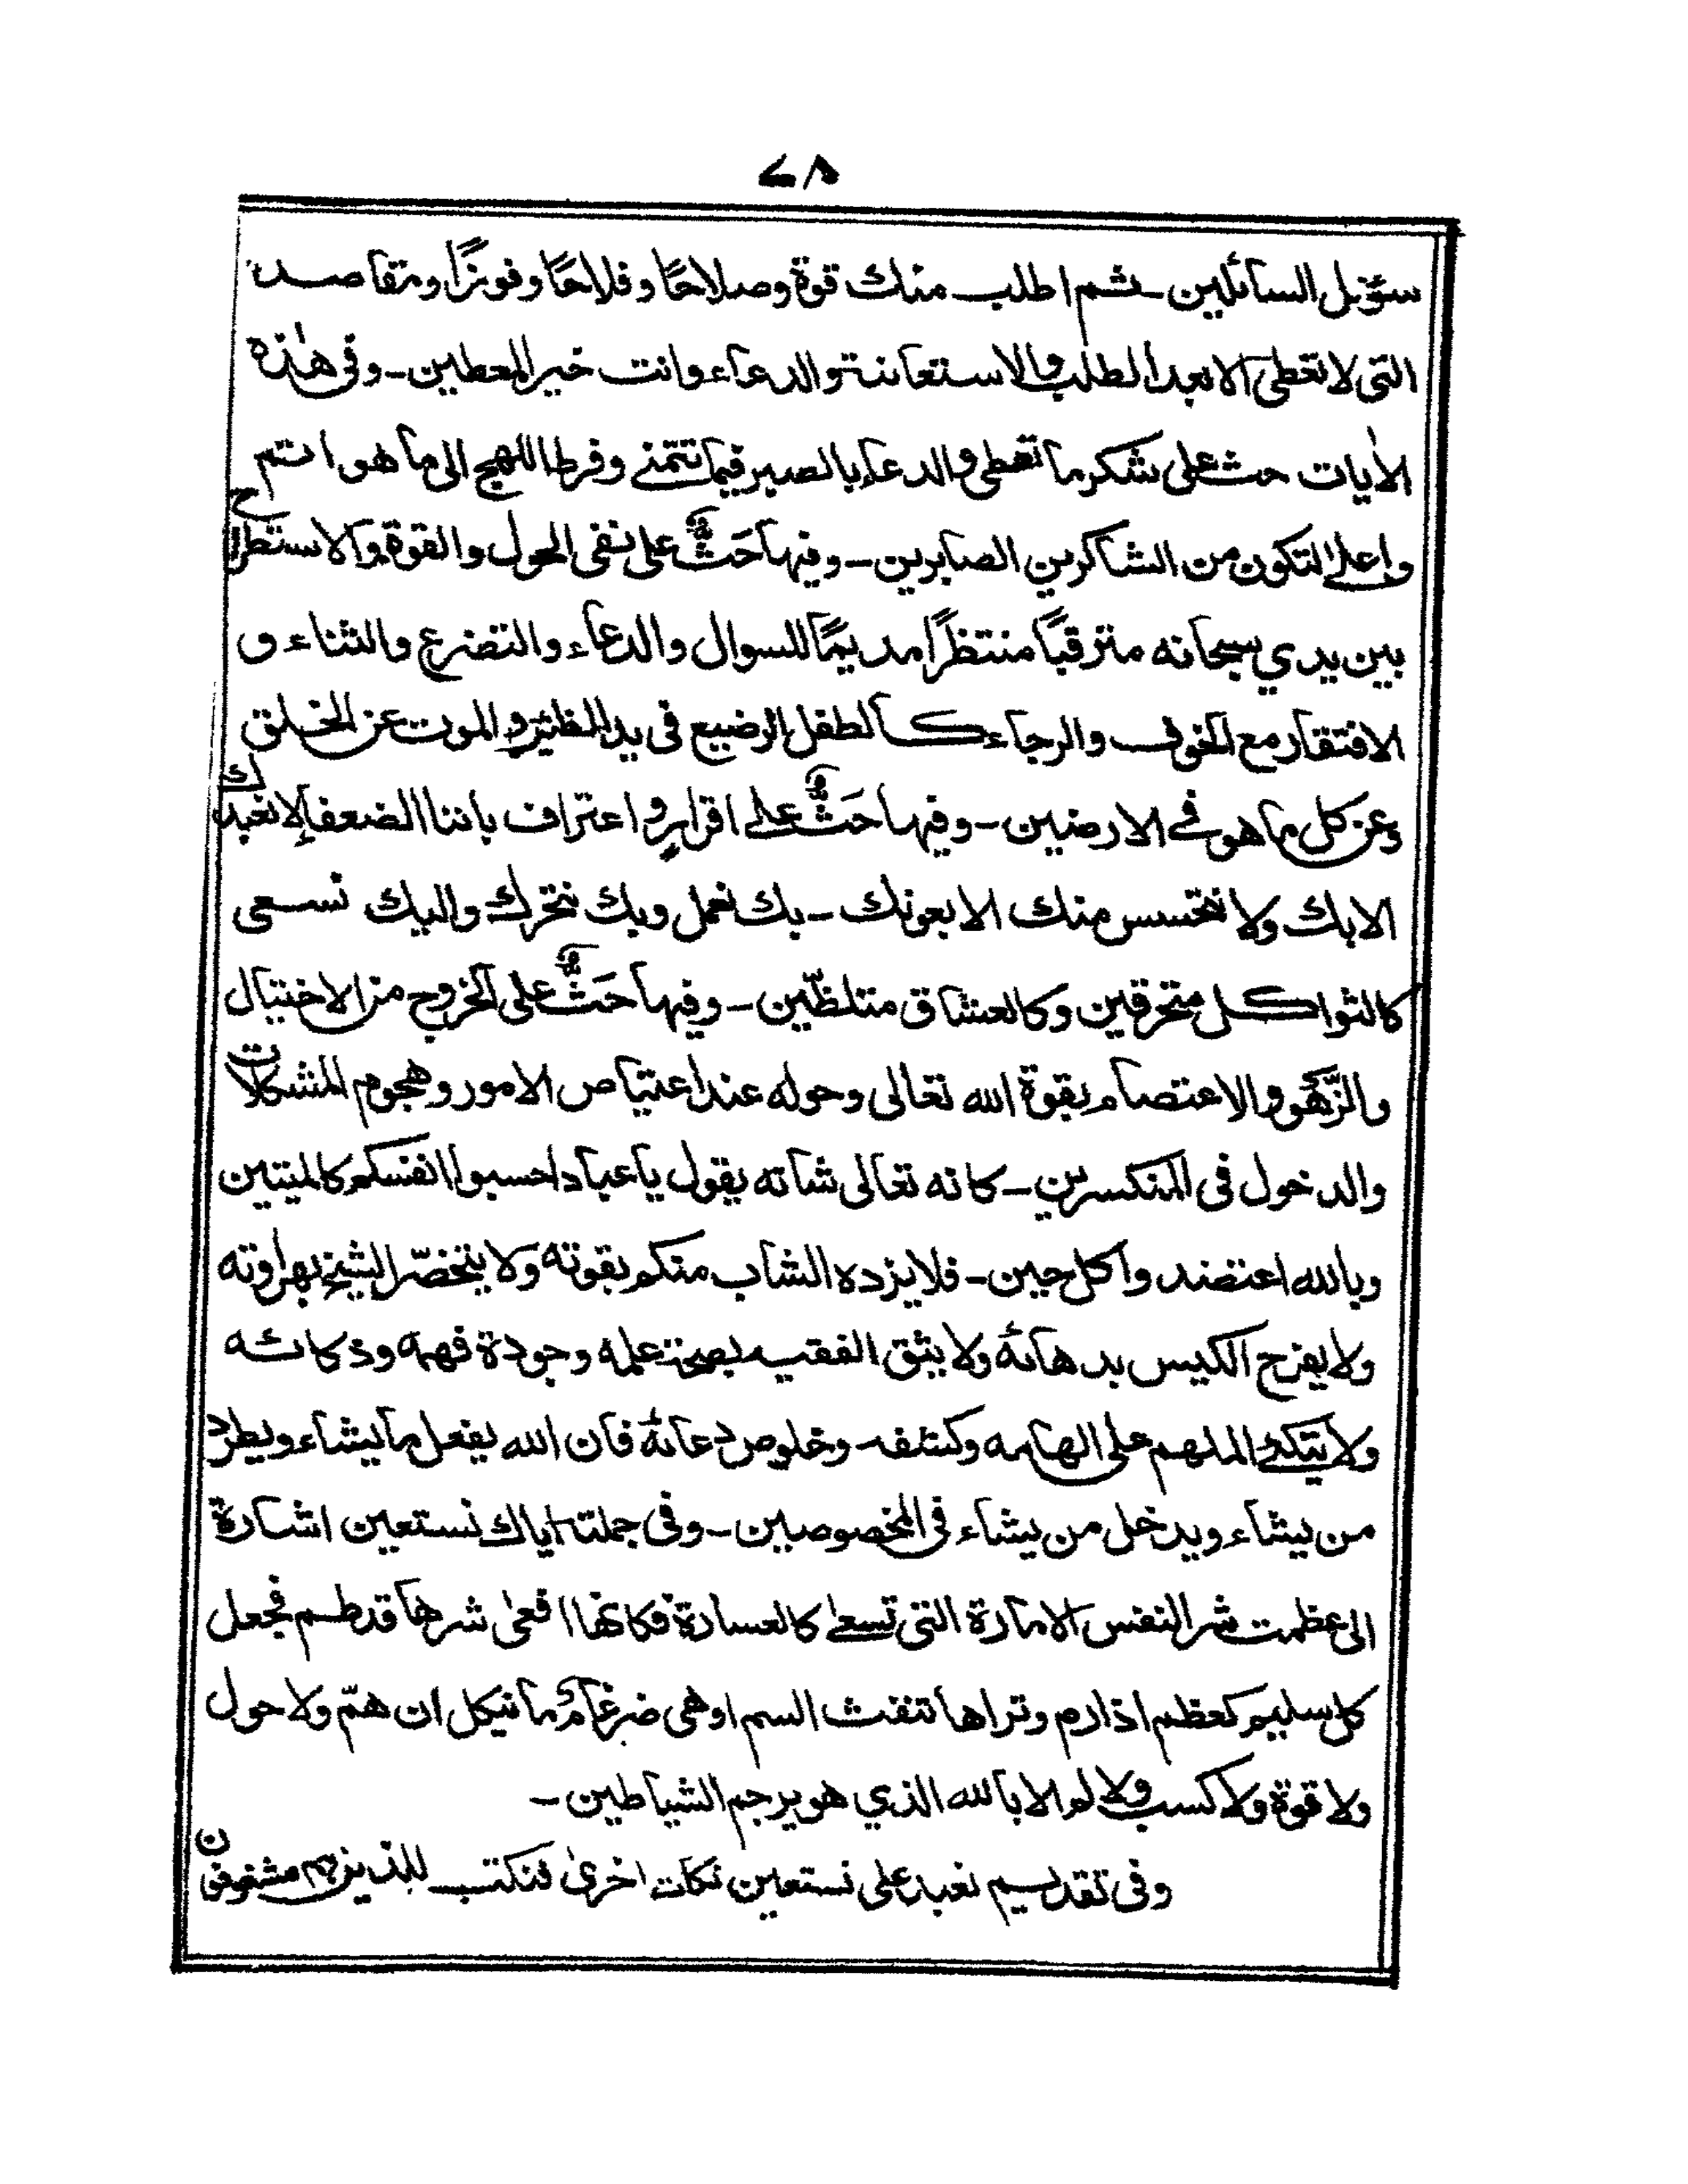 ٧٨
سؤل السائلين ـ ثم اطلب منك قوة وصلاحًا وفلاحًا وفوزًا ومقاصد
التى لا تعطى الا بعد الطلب والاستعانة والدعاء وانت خير المعطين ـ وفى هٰذه
الاٰيات حث على شكر ما تعطى والدعاء بالصبر فيما تتمنى وفرط اللهج الى ما هو اتم
واعلى لتكون من الشاكرين الصابرين ـ وفيها حَثٌّ على نفى الحول والقوة والاستطراح
بين يدي سبحانه مترقبًا منتظرًا مديمًا للسوال والدعاء والتضرع والثناء و
الافتقار مع الخوف والرجاء كالطفل الرضيع فى يد الظئر والموت عن الخلق
وعن كل ما هو فى الارضين ـ وفيها حَثٌّ على اقرارٍ واعتراف باننا الضعفاء لا نعبدك
الا بك ولا نتحسس منك الا بعونك ـ بك نعمل وبك نتحرك واليك نسعى
كالثواكل متحرقين وكالعشاق متلظّين ـ وفيها حَثٌّ على الخروج من الاختيال
والزّهو والاعتصام بقوة الله تعالى وحوله عند اعتياص الامور وهجوم المشكلات
والدخول فى المنكسرين ـ كانه تعالى شانه يقول يا عباد احسبوا انفسكم كالميتين
وبالله اعتضدوا كل حين ـ فلا يزده الشاب منكم بقوته ولا يتخصّر الشيخ بهراوته
ولا يفرح الكيس بدهائه ولا يثق الفقيه بصحة علمه وجودة فهمه وذكائه
ولا يتكئ الملهم على الهامه وكشفه وخلوص دعائه فان الله يفعل ما يشاء ويطرد
من يشاء ويدخل من يشاء فى المخصوصين ـ وفى جملة اياك نستعين اشارة
الى عظمت شر النفس الامارة التى تسعىٰ كالعسارة فكانها افعى شرها قد طم فجعل
كل سليم كعظم اذا رم وتراها تنفث السم او هى ضرغام ما نيكل ان همّ ولا حول
ولا قوة ولا كسب ولا لم الا بالله الذي هو يرجم الشياطين ـ
وفى تقديم نعبد على نستعين نكات اخرىٰ فنكتب للذين هم مشغوفون